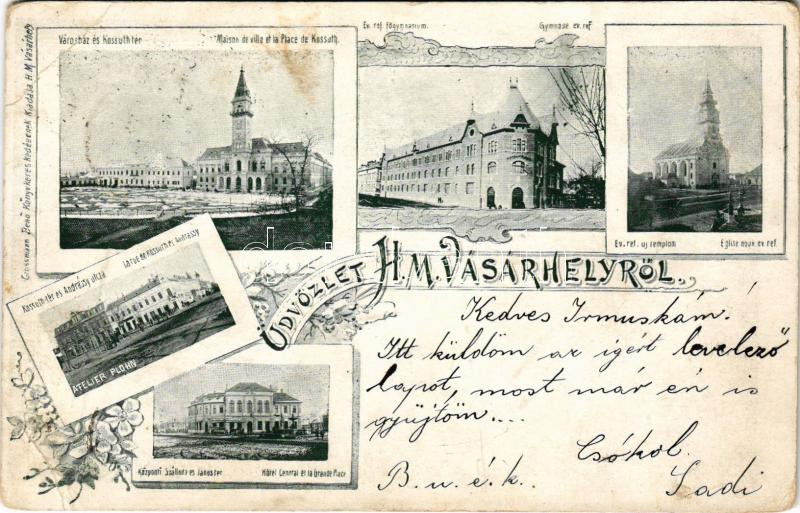 Városház és Kossuth tér
Maison de ville et la Place de Kossuth.
Ev. ref. főgymnasium.
Gymnase ev. ref.
Grossmann Benő Könyvkereskedésének Kiadása H. M. Vásárhely
Ev. ref. uj templom
Église nouv. ev. ref.
Kossuth-tér és Andrássy utcza
La rue de Kossuth et Andrássy
ATELIER PLOHN
ÜDVÖZLET H. M. VÁSÁRHELYRŐL.
Központi Szálloda és János tér
Hôtel Central et la Grande Place
Kedves Irmuskám!
Itt küldöm az igért levelező
lapot, most már én is
gyüjtöm....
Csókol.
B. u. é. k.. Sadi
darabanth